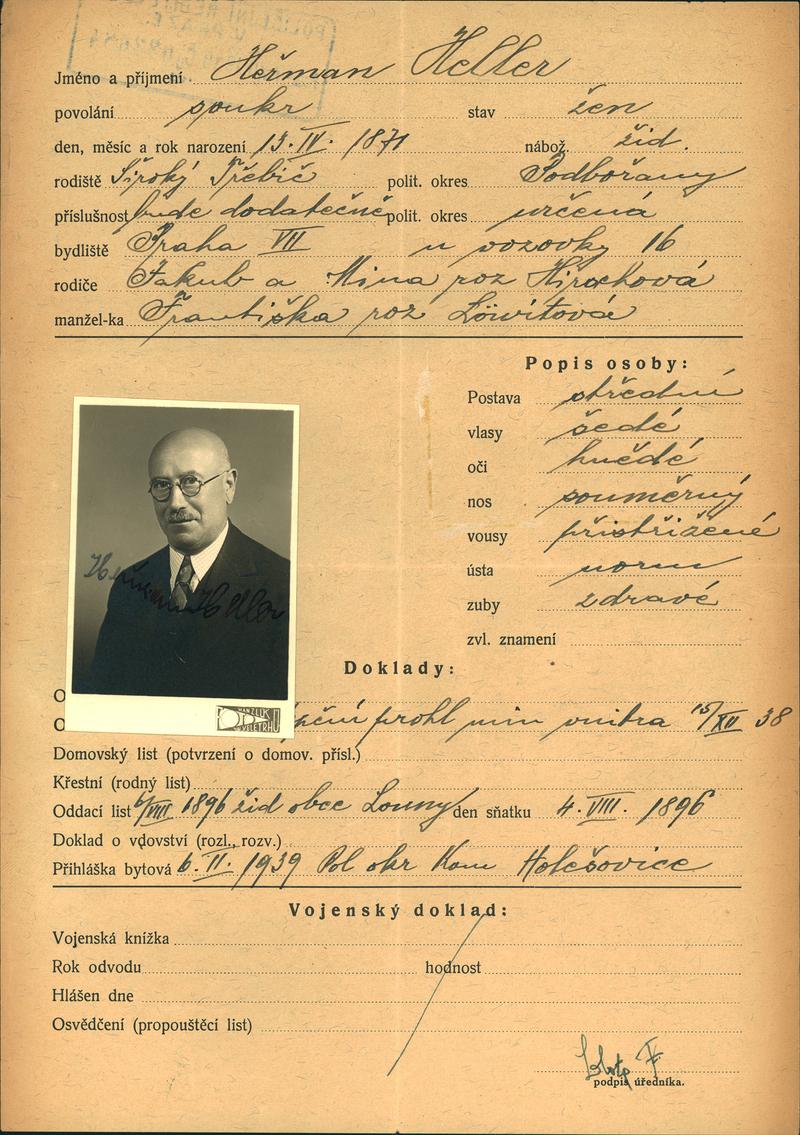 Jméno a příjmení Heřman Heller
povolání soukr stav žen
den, měsíc a rok narození 13. IV. 1871 nábož. žid.
rodiště Široký Třebič polit. okres Podbořany
příslušnost bude dodatečně polit. okres určená
bydliště Praha VII u vozovky 16
rodiče Jakub a Mina roz Hirschová
manžel-ka Františka roz Löwitová
Popis osoby:
Postava střední
vlasy šedé
oči hnědé
nos souměrný
vousy přistřižené
ústa norm
zuby zdravé
zvl. znamení
Heřman Heller
Doklady:
prohl min vnitra 15/XII 38
Domovský list (potvrzení o domov. přísl.)
Křestní (rodný list)
Oddací list 6/VIII 1896 žid obce Louny den sňatku 4. VIII. 1896
Doklad o vdovství (rozl., rozv.)
Přihláška bytová 6. II. 1939 Pol okr Kom Holešovice
Vojenský doklad:
Vojenská knížka
Rok odvodu hodnost
Hlášen dne
Osvědčení (propouštěcí list)
podpis úředníka.